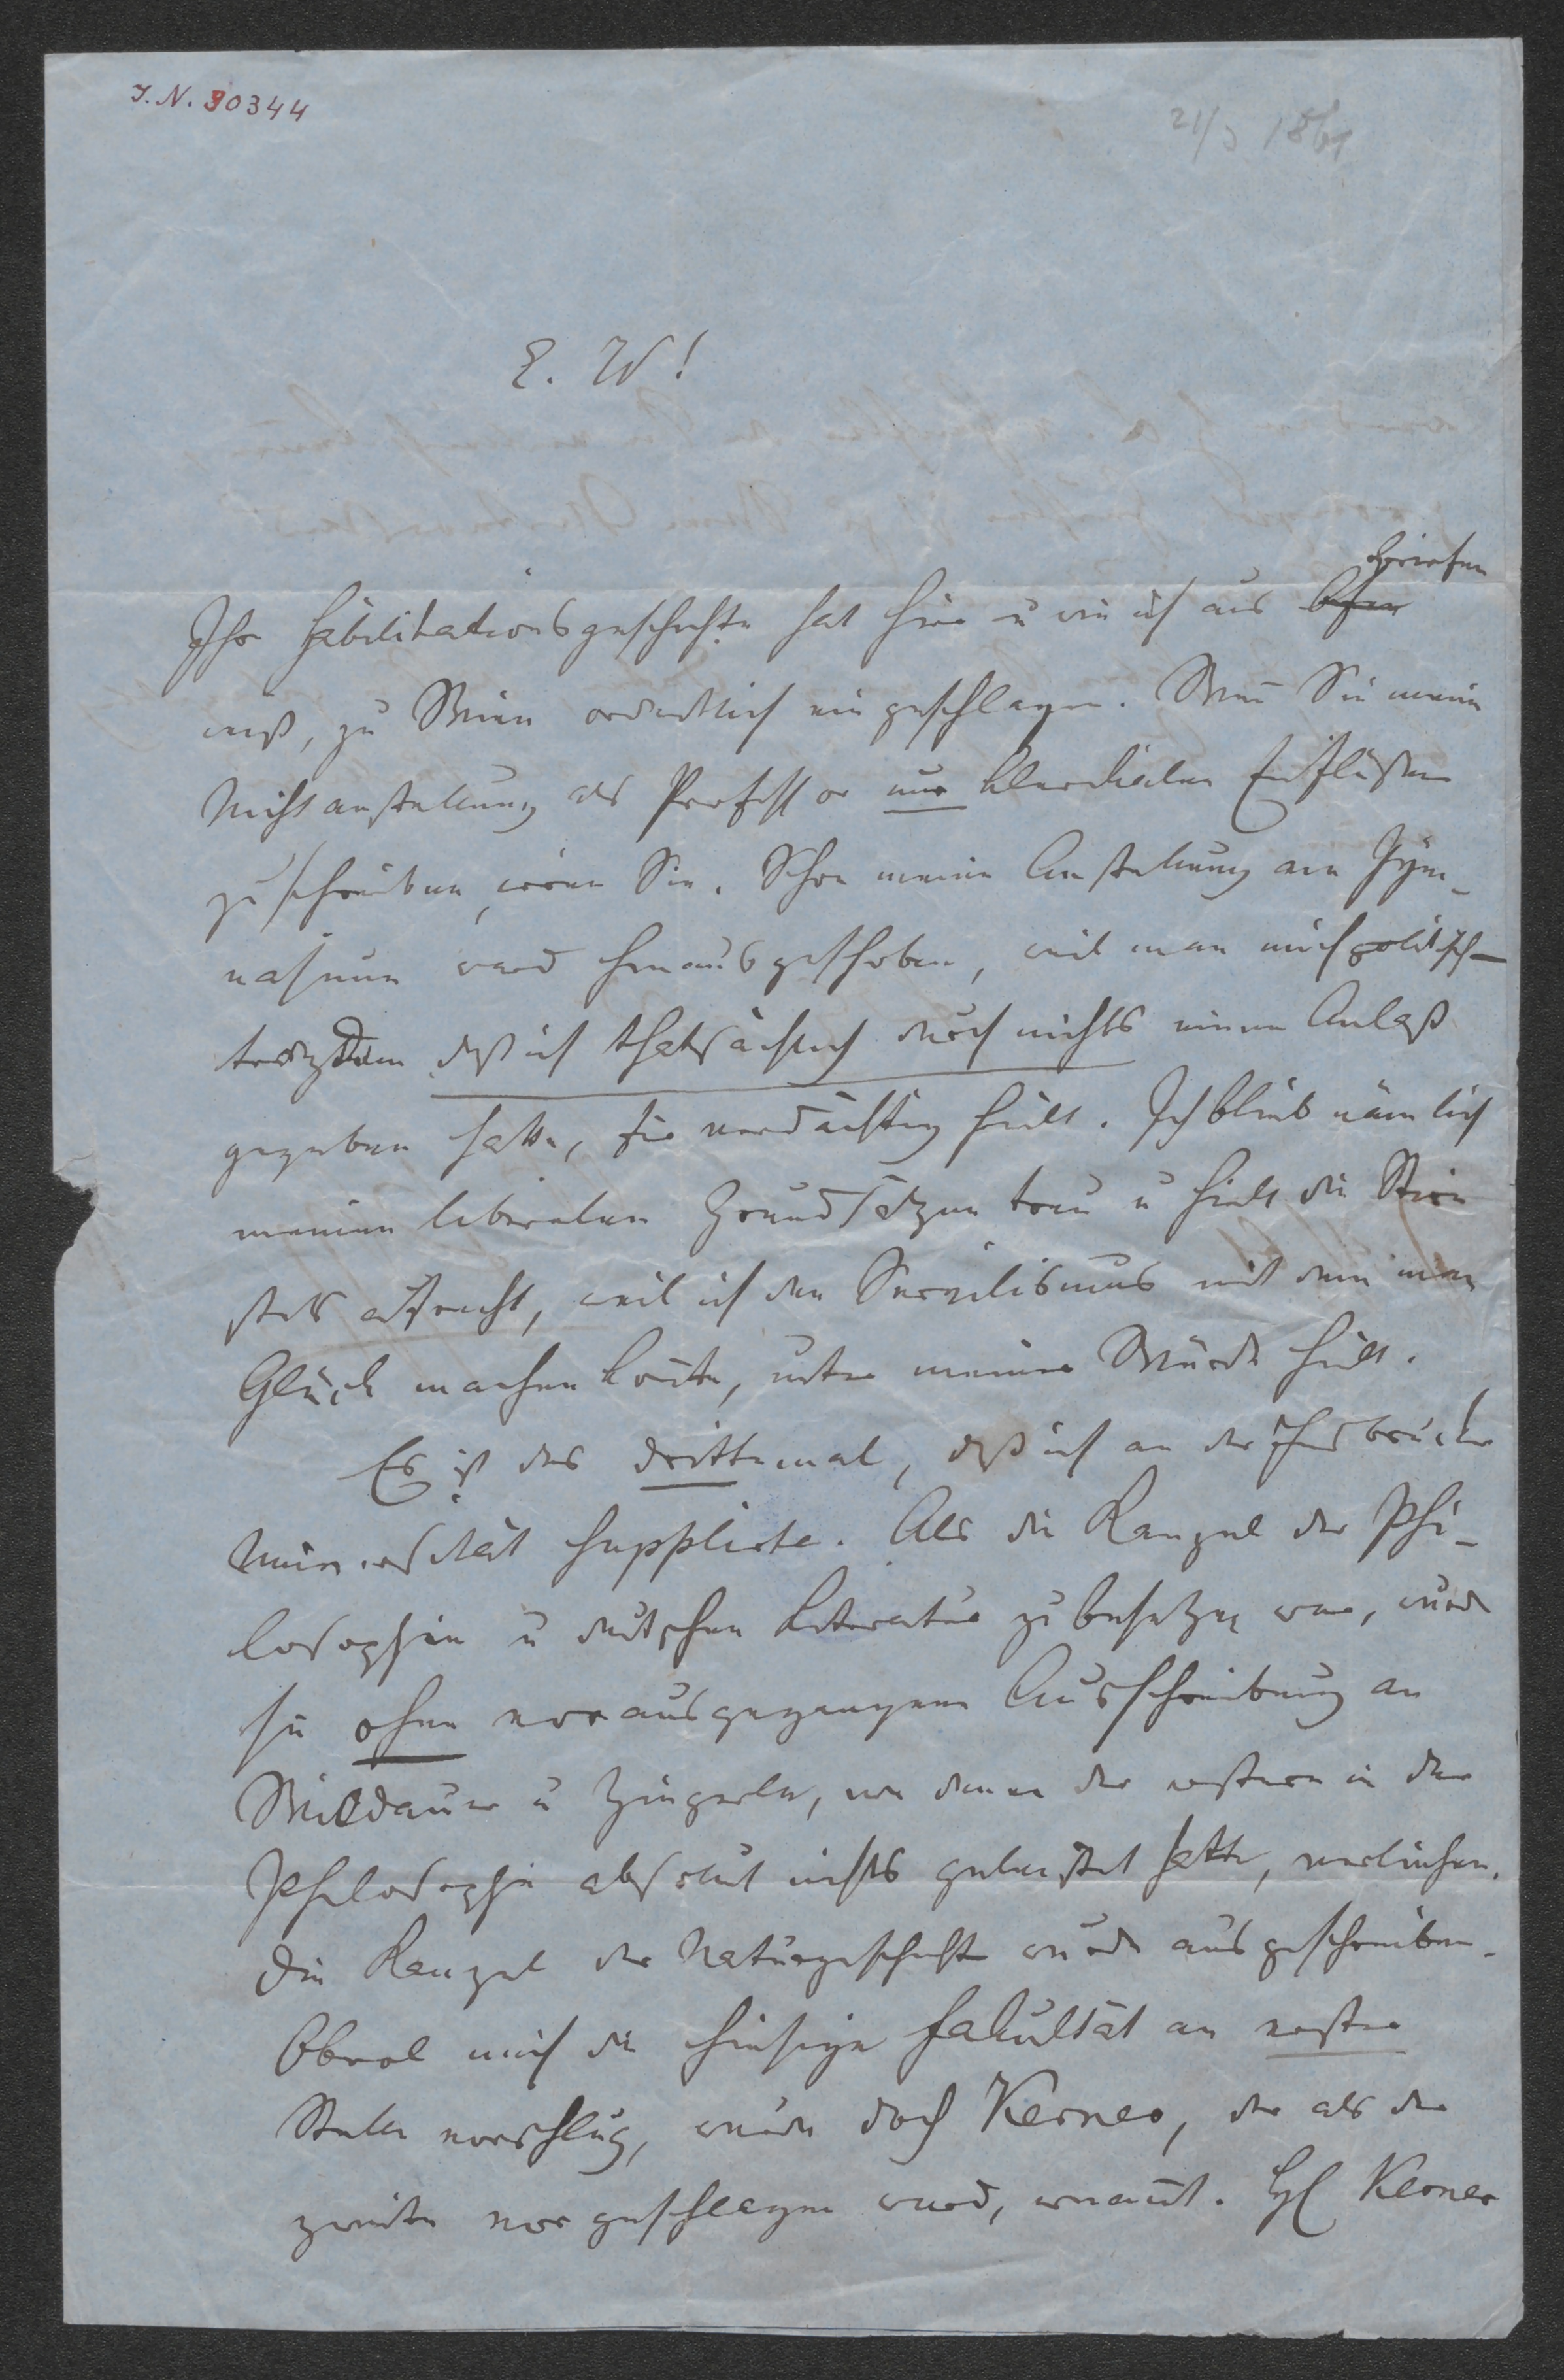 I. N. 90344
21/3 1861
E. W!
Briefen
Ihre Habilitationsgeschichte hat hier u wie ich aus
weiß, zu Wien ordentlich eingeschlagen. Wenn Sie meine
Nichtanstellung als Professor nur klerikalen Einflüssen
zuschreiben, irren Sie. Schon meine Anstellung am Gym-
nasium ward hinausgeschoben, weil man mich politisch –
trotzdem daß ich thatsächlich durch nichts einen Anlaß
gegeben hatte, für verdächtig hielt. Ich blieb nämlich
meinen liberalen Grundsätzen treu u hielt die Stirn
stets aufrecht, weil ich den Servilismus mit dem man
Glück machen konnte, unter meiner Würde hielt.
Es ist das drittemal, daß ich an der Innsbrucker
Universität supplirte. Als die Kanzel der Phi-
losophie u deutschen Literatur zu besetzen war, wurde
sie ohne vorausgegangene Ausschreibung an
Wildauer u Zingerle, von denen der erstere in der
Philosophie absolut nichts geleistet hatte, verliehen.
Die Kanzel der Naturgeschichte wurde ausgeschrieben.
Obwol mich die hiesige Fakultät an erster
Stelle vorschlug, wurde doch Kerner, der als der
zweite vorgeschlagen ward, ernannt. Kerner